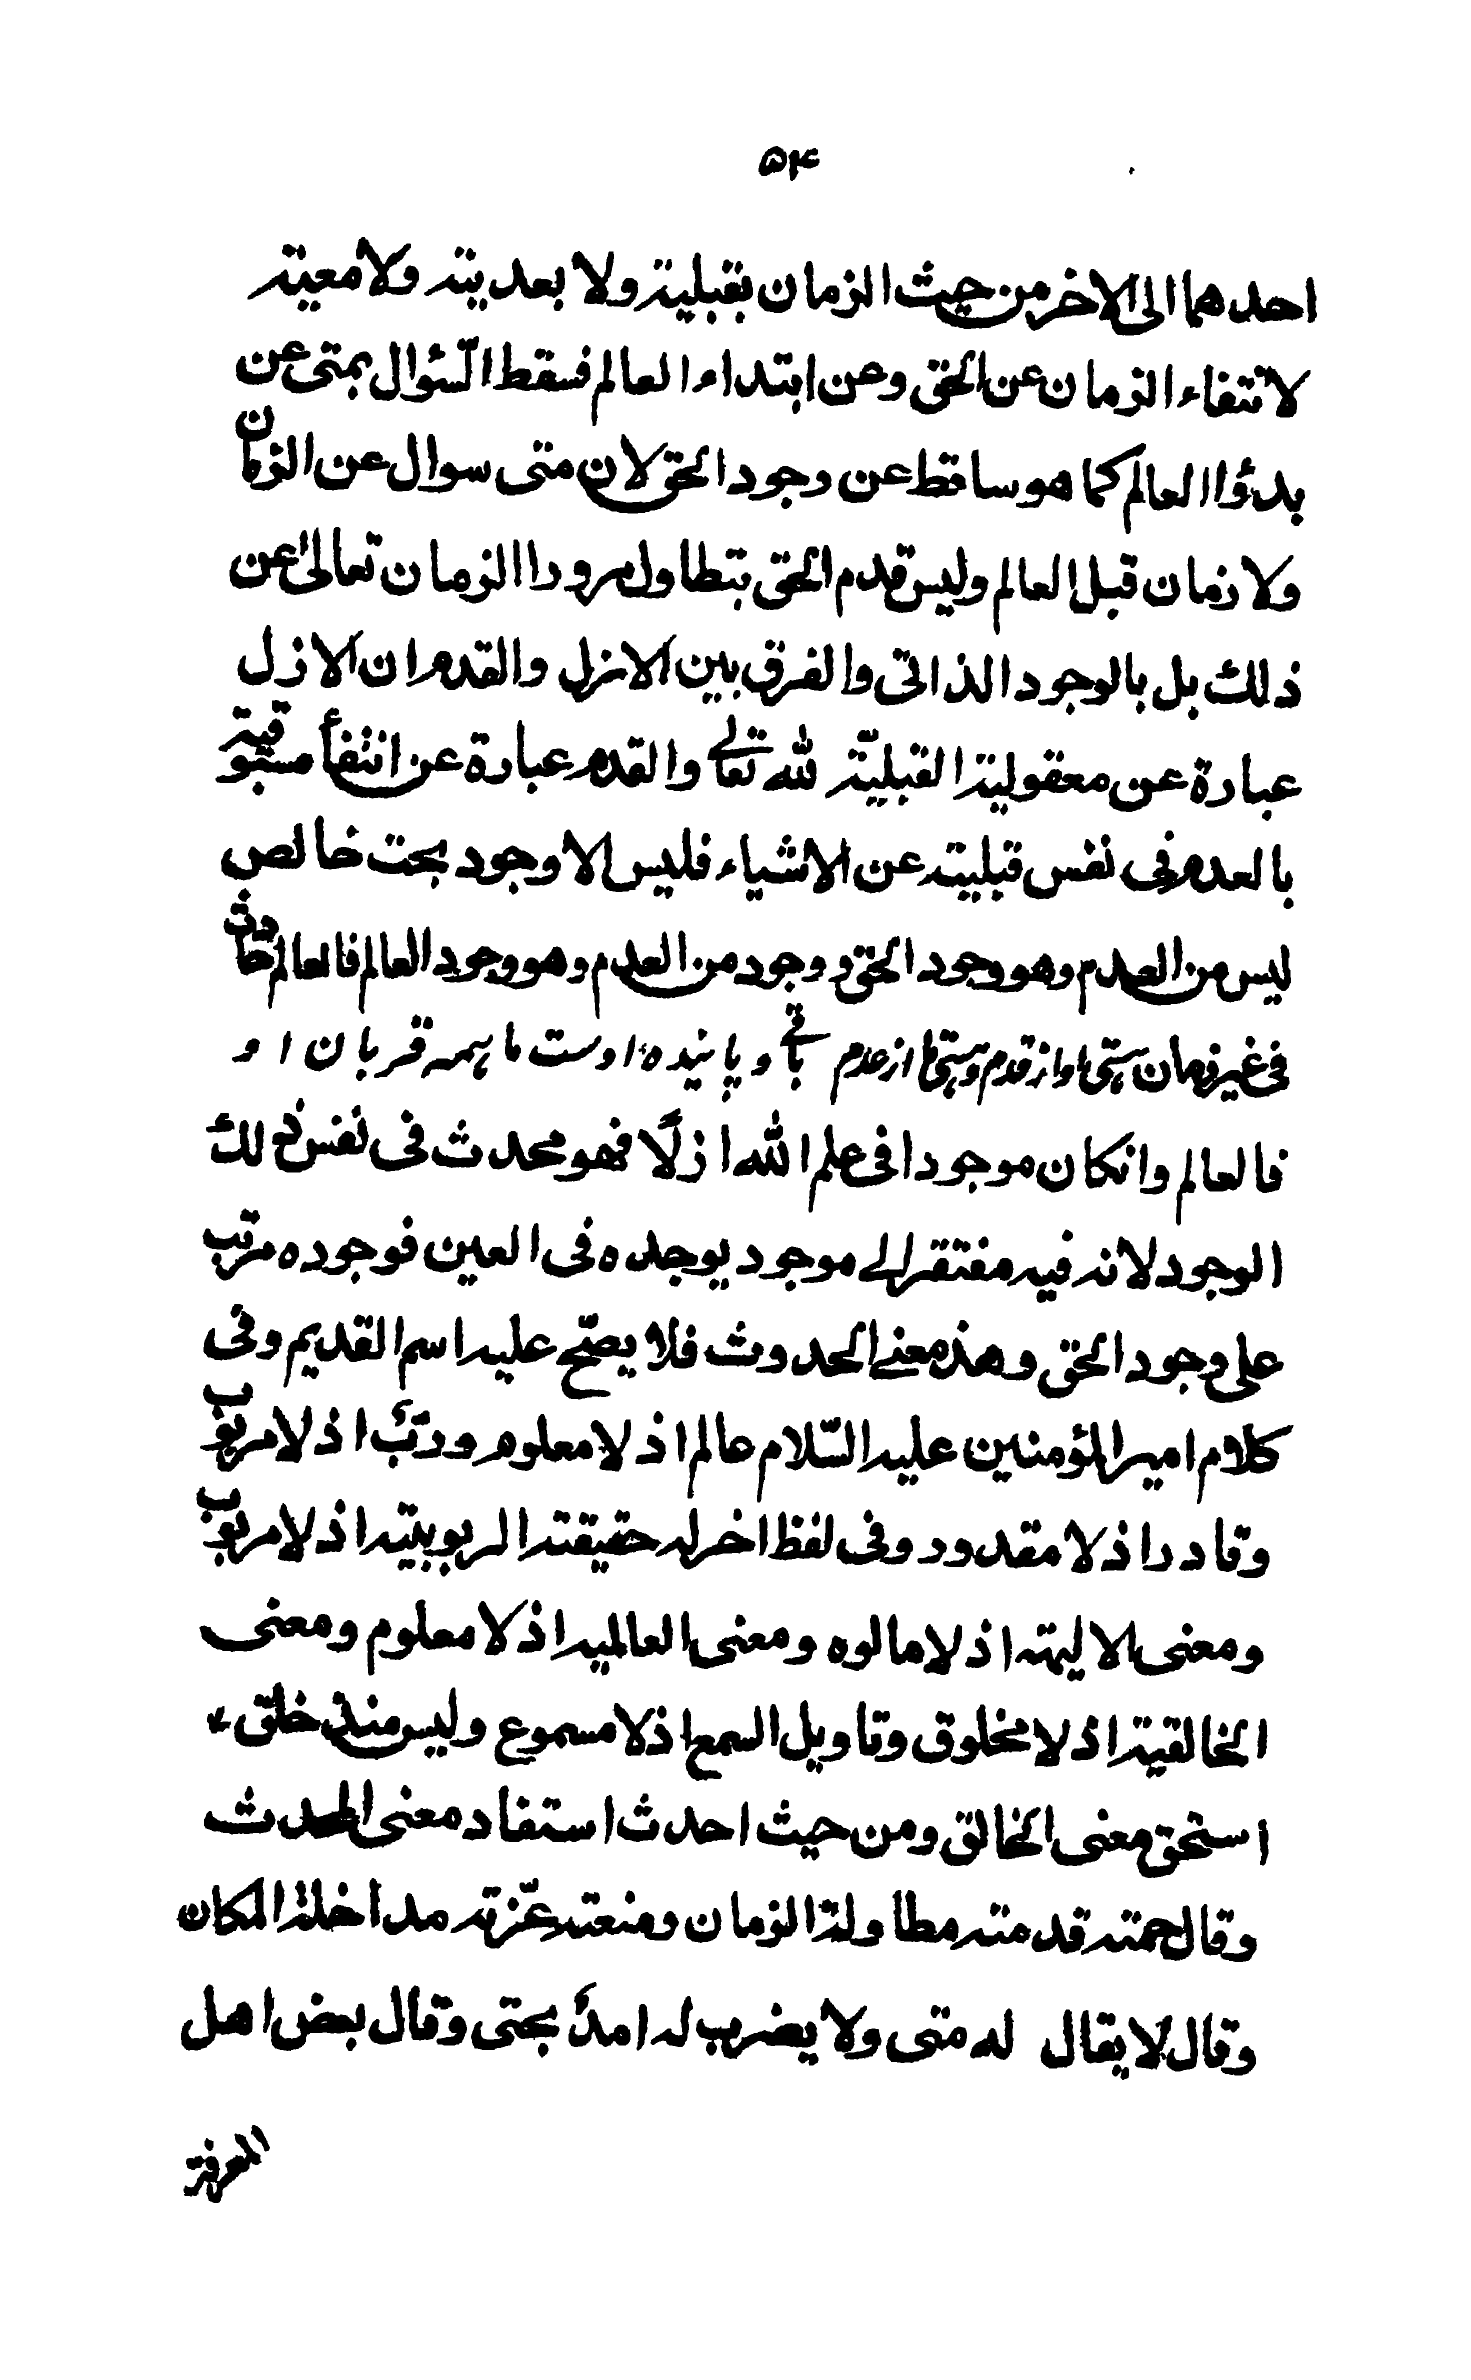 ۵۴
احدهما الى الاخر من حيث الزمان بقبلية ولا بعدية ولا معية
لانتفاء الزمان عن الحق وعن ابتداء العالم فسقط السّؤال بمتى عن
بدؤا العالم كما هو ساقط عن وجود الحق لان متى سوال عن الزمان
ولا زمان قبل العالم وليس قدم الحق بتطاول مرور الزمان تعالىٰ عن
ذلك بل بالوجود الذاتى والفرق بين الازل والقدم ان الازل
عبارة عن معقولية القبليّة لله تعالے والقدم عبارة عن انتفأ مسبوقية
بالعدم فى نفس قبليته عن الاشياء فليس الا وجود بحت خالص
ليس من العدم وهو وجود الحق ووجود من العدم وهو وجود العالم فالعالم حادث
فى غير زمان هستى او از قدم و هستى ما از عدم باقے و پاينده اوست ما همه قربان او
فالعالم وانكان موجودا فى علم الله ازلًا فهو محدث فى نفس ذلك
الوجود لانه فيه مفتقر الے موجود يوجده فى العين فوجوده مرتب
على وجود الحق وهذ معنے الحدوث فلا يصّح عليه اسم القديم وفى
كلام امير المؤمنين عليه السّلام عالم اذ لا معلوم وربّ اذ لا مربوب
وقادر اذ لا مقدور وفى لفظ اخر له حقيقته الربوبيته اذ لا مربوب
ومعنى الالهيته اذ لا مالوه ومعنى العالميه اذ لا معلوم ومعنى
الخالقية اذ لا مخلوق وتاويل السمع اذ لا مسموع وليس منذ خلق
استحق معنى الخالق ومن حيث احدث استفاد معنى المحدث
وقال قدمته مطاولة الزمان ومنعته عزّته مداخلة المكان
وقال لا يقال له متى ولا يضرب له امدٌ بحتى وقال بعض اهل
المعرفة